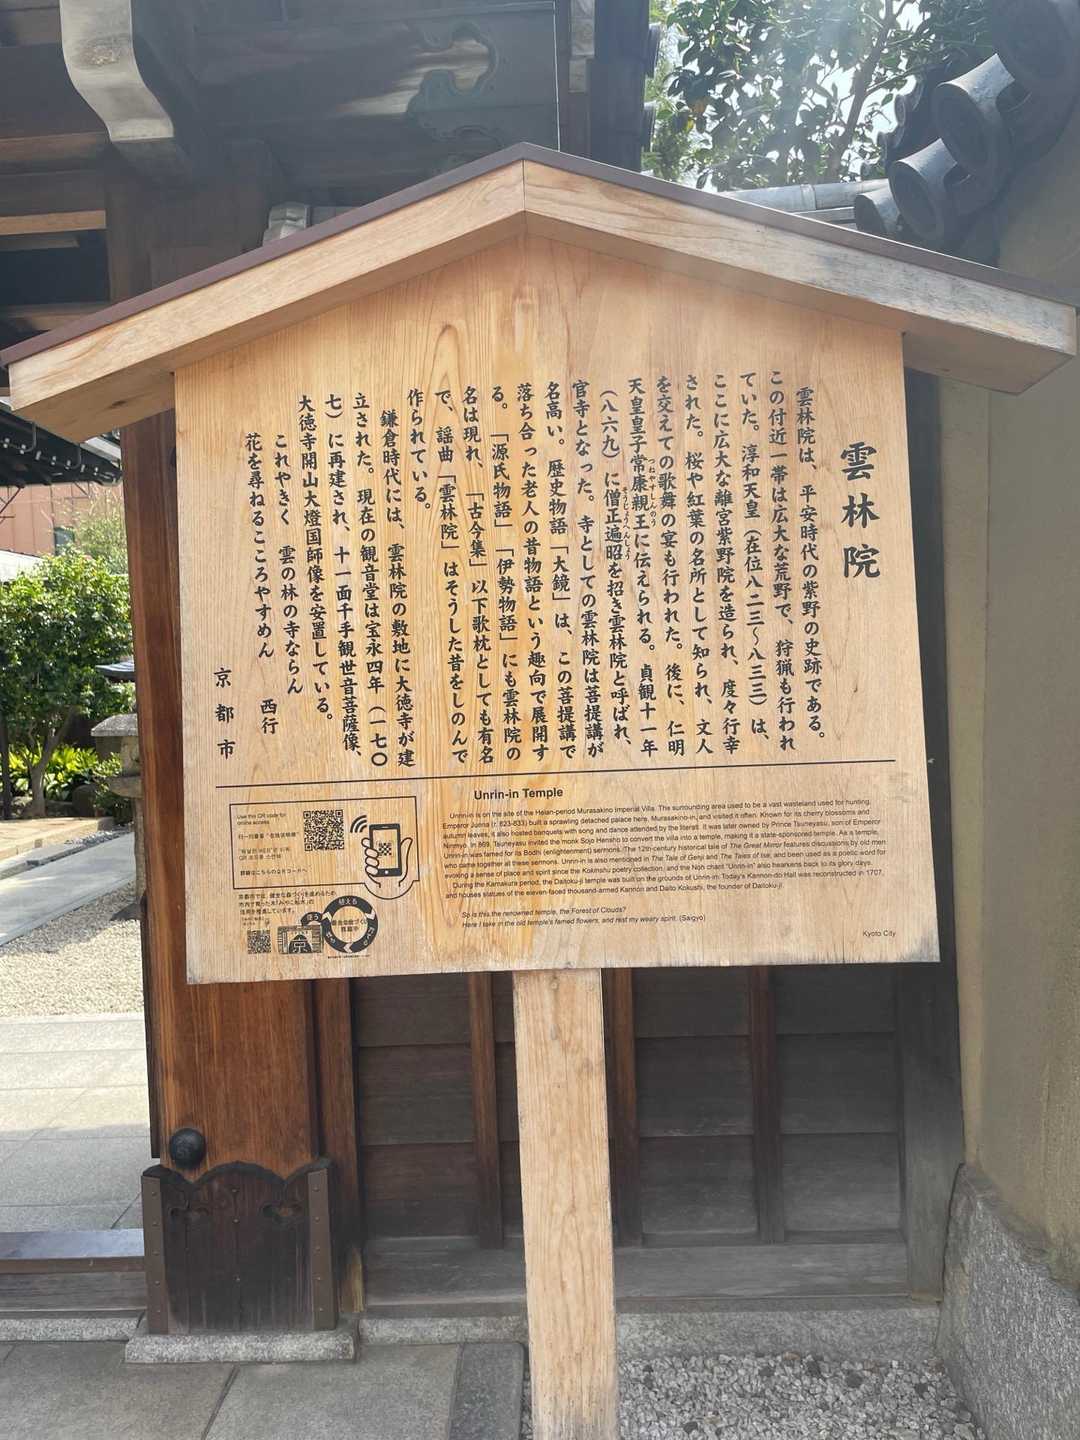 雲林院
雲林院は、平安時代の紫野の史跡である。
この付近一帯は広大な荒野で、狩猟も行われ
ていた。淳和天皇（在位八二三〜八三三）は、
ここに広大な離宮紫野院を造られ、度々行幸
された。桜や紅葉の名所として知られ、文人
を交えての歌舞の宴も行われた。後に、仁明
天皇皇子常康親王に伝えられる。貞観十一年
つねやすしんのう
（八六九）に僧正遍昭を招き雲林院と呼ばれ、
そうじょうへんじょう
官寺となった。寺としての雲林院は菩提講が
名高い。歴史物語「大鏡」は、この菩提講で
落ち合った老人の昔物語という趣向で展開す
る。「源氏物語」「伊勢物語」にも雲林院の
名は現れ、「古今集」以下歌枕としても有名
で、謡曲「雲林院」はそうした昔をしのんで
作られている。
鎌倉時代には、雲林院の敷地に大徳寺が建
立された。現在の観音堂は宝永四年（一七〇
七）に再建され、十一面千手観世音菩薩像、
大徳寺開山大燈国師像を安置している。
これやきく　雲の林の寺ならん
花を尋ねるこころやすめん　西行
京都市
Unrin-in Temple
Unrin-in is on the site of the Heian-period Murasakino Imperial Villa. The surrounding area used to be a vast wasteland used for hunting.
Emperor Junna (r. 823-833) built a sprawling detached palace here, Murasakino-in, and visited it often. Known for its cherry blossoms and
autumn leaves, it also hosted banquets with song and dance attended by the literati. It was later owned by Prince Tsuneyasu, son of Emperor
Ninmyo. In 869, Tsuneyasu invited the monk Sojo Hensho to convert the villa into a temple, making it a state-sponsored temple. As a temple,
Unrin-in was famed for its Bodhi (enlightenment) sermons. The 12th-century historical tale of The Great Mirror features discussions by old men
who came together at these sermons. Unrin-in is also mentioned in The Tale of Genji and The Tales of Ise, and been used as a poetic word for
evoking a sense of place and spirit since the Kokinshu poetry collection, and the Noh chant "Unrin-in" also hearkens back to its glory days.
During the Kamakura period, the Daitoku-ji temple was built on the grounds of Unrin-in. Today's Kannon-do Hall was reconstructed in 1707,
and houses statues of the eleven-faced thousand-armed Kannon and Daito Kokushi, the founder of Daitoku-ji.
So is this the renowned temple, the Forest of Clouds?
Here I take in the old temple's famed flowers, and rest my weary spirit. (Saigyo)
Kyoto City
Use this QR code for
online access.
扫一扫查看"在线说明牌"
詳細はこちらのQRコードへ
京都市では、健全な森づくりを進めるため、
市内で育った木「みやこ杣木」の
活用を推進しています。